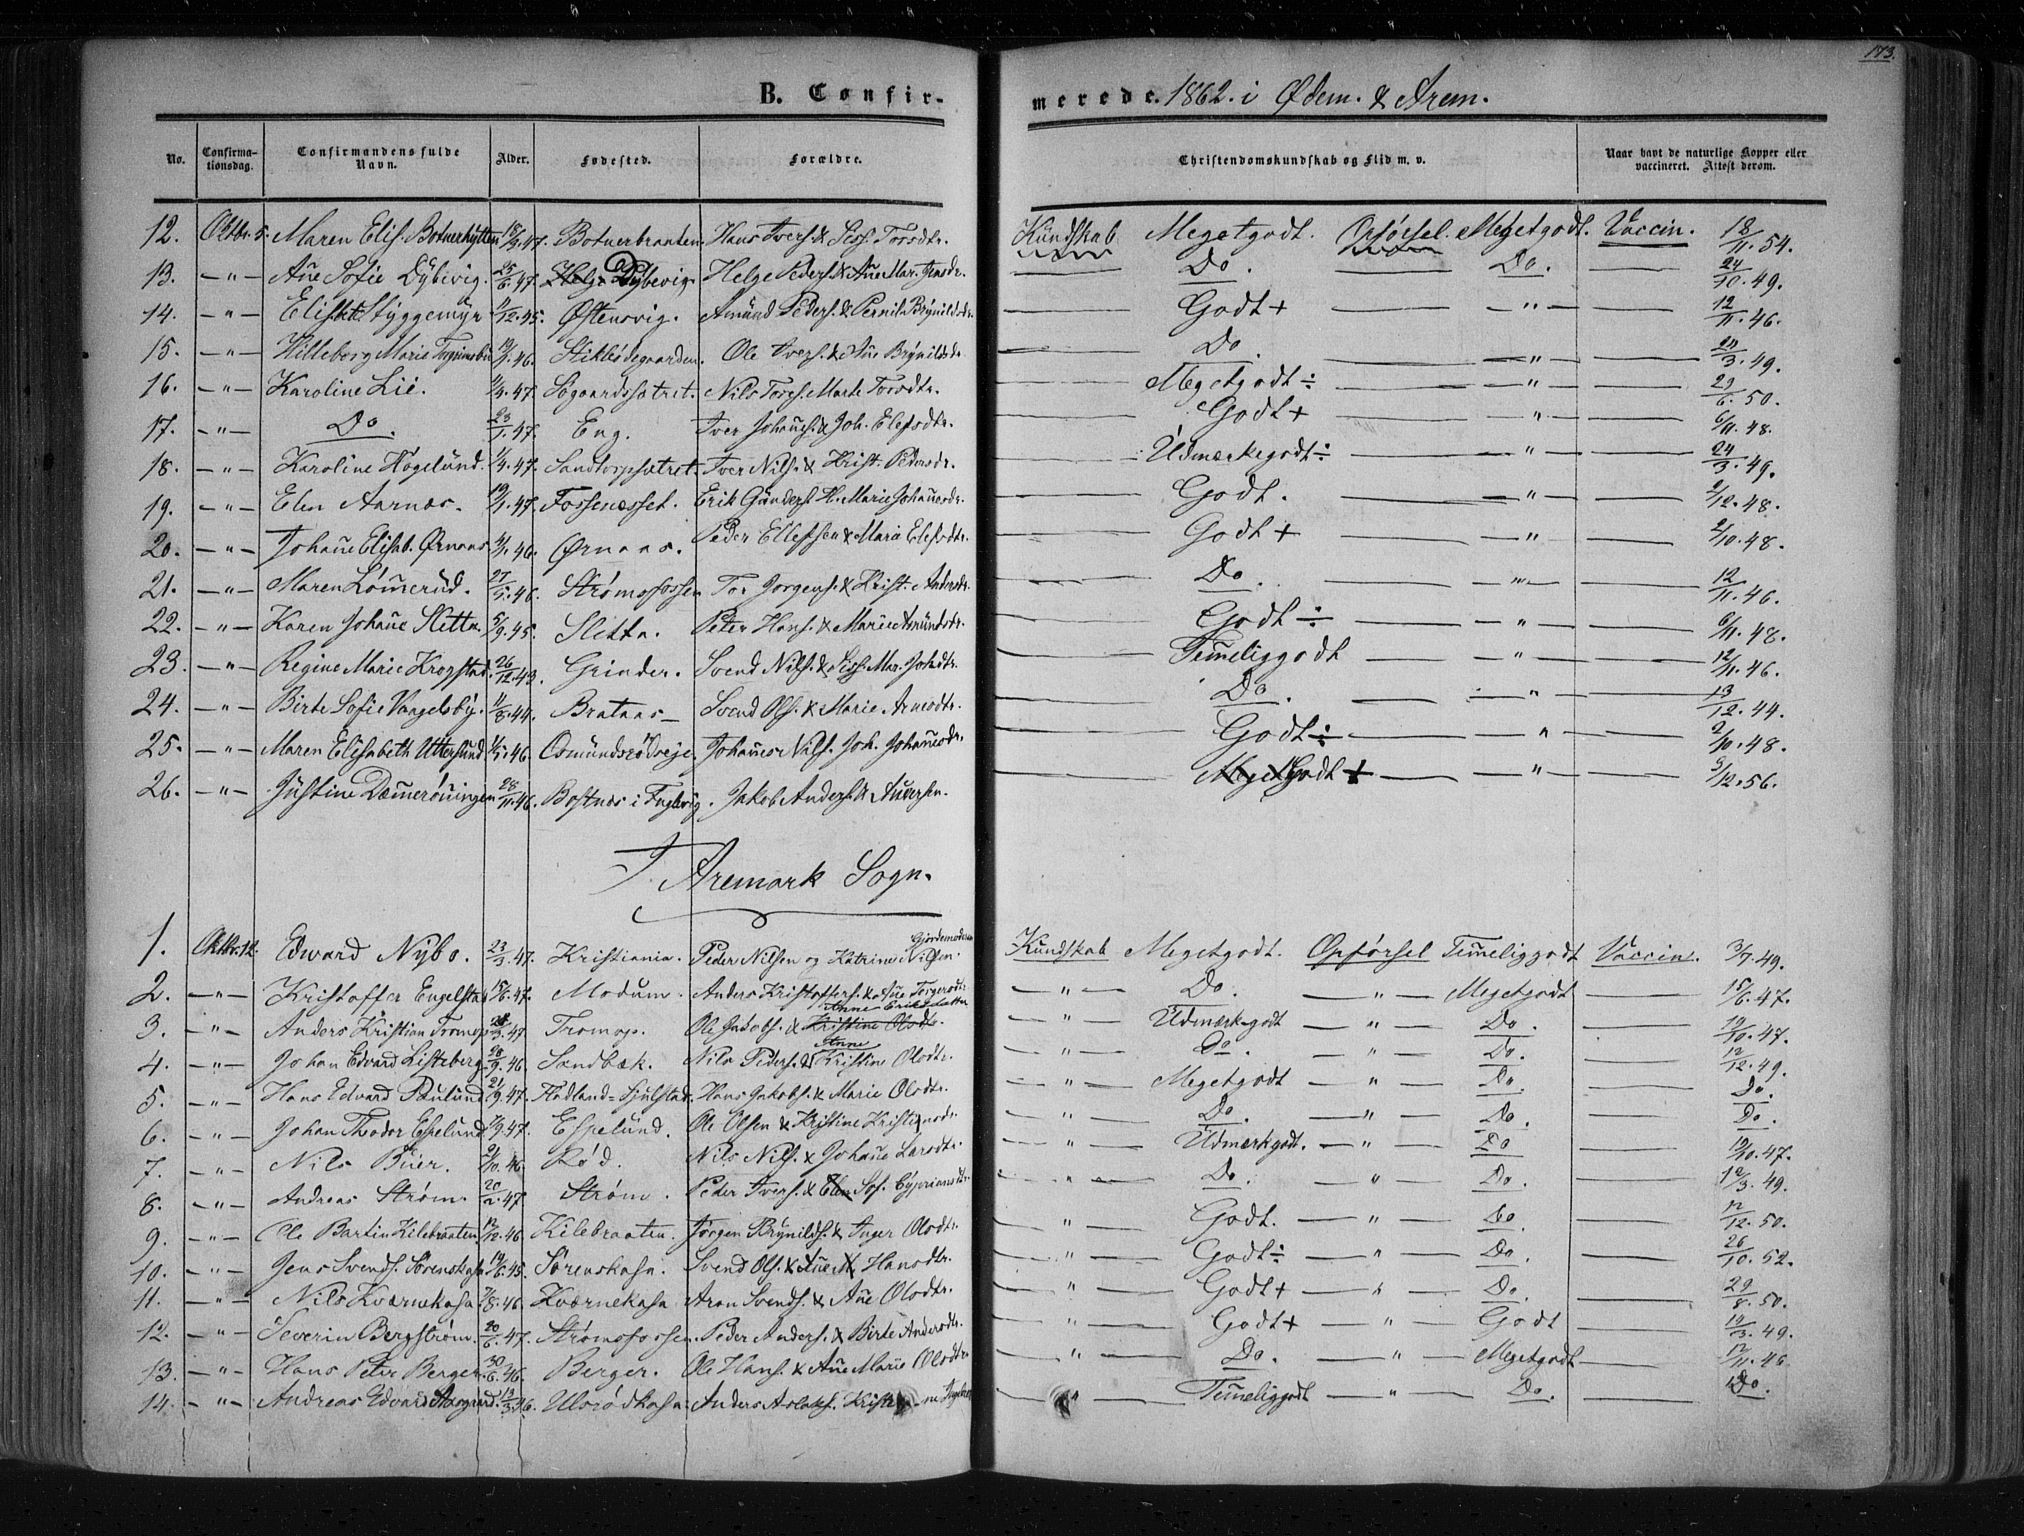 173.
B. Confir- merede. 1862. i Ødem. & Arem.
No. Confirma-tionsdag. Confirmandens fulde Navn. Alder. Fødested. Forældre. Christendomskundskab og Flid m. v. Naar havt de naturlige Kopper eller vaccineret. Attest derom.
12. Oktbr. 5. Maren Elis. Botnerhytten 18/9.47. Botnerbraaten. Hans Ivers. & Siss. Torsdtr. Kundskab Megetgodt. Opførsel. Megetgodt. Vaccin. 18/11.54.
13. — „ — Añe Sofie Dybevig. 25/6.47. Dybevig. Helge Peders. & Añe Mar. Jensdr. — Do. — Do. — 24/10.49.
14. — „ — Elisabet Styggemyr 11/12.45. Østensvig. Amund Peders. & Pernil. Brynildsdr. — Godt + — „ — 12/11.46.
15. — „ — Hilleborg Marie 19/9.46. Stikledegaarden. Ole Ivers. & Añe Brynildsdr. — Do. — „ — 24/3.49.
16. — „ — Karoline Lie. 11/4.47. Søgaardssætret. Nils Tores. Marte Torsdtr. — Megetgodt ÷ — „ — 29/6.50.
17. — „ — Do. 23/1.47. Eng. Iver Johañes. & Joh. Elefsdtr. — Godt + — „ — 6/11.48.
18. — „ — Karoline Høgelund. 1/4.47. Sandtorpsætret. Iver Nils. & Krist. Pedersdr. — Udmærkegodt ÷ — „ — 24/3.49.
19. — „ — Elen Aarnæs. 19/1.47. Fossenæsset. Erik Gunders. H. Marie Johañesdr. — Godt. — „ — 2/12.48.
20. — „ — Johañe Elisab. Ørnaas 4/1.46. Ørnaas. Peder Ellefsen & Maria Elefsdtr. — Godt + — „ — 2/10.48.
21. — „ — Maren Løm̃erud. 27/5.46. Strømsfossen Tor Jørgens. & Krist. Andersdr. — Do. — „ — 12/11.46.
22. — „ — Karen Johañe Sletta. 5/9.45. Sletta. Peter Hans. & Marie Amundsdr. — Godt ÷ — „ — 6/11.48.
23. — „ — Regine Marie Kropstad. 26/12.43. Grinder. Svend Nils. & Siss. Mar. Johsdtr. — Tem̃eliggodt — „ — 12/11.46.
24. — „ — Birte Sofie Vangelsby. 11/8.44. Brataas — Svend Ols. & Marie. Arnesdtr. — Do. — „ — 13/12.44.
25. — „ — Maren Elisabeth Utterslund 1/1.46. Osmundsrødseje. Johañes Nils. Joh. Johañesdr. — Godt ÷ — „ — 2/10.48.
26. — „ — Justine Dæm̃erøningen 28/11.46. Bostnæs i Fuglevig. Jakob Anders. & — Godt + — „ — 3/12.56.
I Aremark Sogn.
1. Oktbr. 12. Edward Nybo. 23/3.47. Kristiania. Peder Nilsen og Katrine Nilsen. Gjordemoderen Kundskab Megetgodt. Opførsel Tem̃eliggodt Vaccin. 3/7.49.
2. — „ — Kristoffer Engelstad 15/6.47. Modum. Anders Kristoffers. & Añe Torgersdr. — „ — Do. — „ — Megetgodt — 15/6.47.
3. — „ — Anders Kristian Tromop 28/3.47 Tromop. Ole Jakobs. & Kristine Olsdtr. Anne Eriksdatter — „ — Udmærkegodt — „ — Do. — 19/10.47.
4. — „ — Johan Edvard Listeberg 28/9.46 Sandbæk. Nils Peders. & Anne Kristine Olsdtr. — „ — Do. — „ — Do. — 12/12.49.
5. — „ — Hans Edvard Paulund 21/9.47. Fladland=Sjulstad. Hans Jakobs. & Marie Olsdtr. — „ — Megetgodt — „ — Do. — Do.
6. — „ — Johan Theodor Espelund 7/9.47. Espelund. Ole Olsen & Kristine Kristinsdr. — „ — Do. — „ — Do — Do.
7. — „ — Nils Buer. 21/10.46 Rød. Nils Nils. & Johañe Larsdtr. — „ — Udmærkgodt. — „ — Do — 19/10.47.
8. — „ — Andreas Strøm. 20/2.47. Strøm. Peder Ivers. & Sof. Cypriansdtr. — „ — Do. — „ — Do. — 12/3.49.
9. — „ — Ole Bartin Kilebraaten. 12/12.46. Kilebraaten. Jørgen Brynilds. & Inger Olsdtr. — „ — Godt. — „ — Do — 12/12.50.
10. — „ — Jens Svends. Sørenskasa 19/6.45. Sørenskasa. Svend Ols. & Añe M. Hansdtr. — „ — Godt ÷ — „ — Do. — 26/10.52.
11. — „ — Nils Kværnekasa. 7/8.46. Kværnekasa Aron Svends. & Añe Olsdtr. — „ — Godt + — „ — Do. — 29/8.50.
12. — „ — Severin Bergstrøm. 20/6.47. Strømsfossen. Peder Anders. & Birte Andersdtr. — „ — Godt + — „ — Godt — 19/3.49.
13. — „ — Hans Peter Berger. 30/6.46. Berger. Ole Hans. & Añe Marie Olsdtr. — „ — Do. — „ — Megetgodt — 12/11.46
14. — „ — Andreas Edvard Aasgaard. 13/3.46. Ulsrødkasa. Anders Aslaks. — „ — Tem̃eliggodt — „ — Do. — Do.